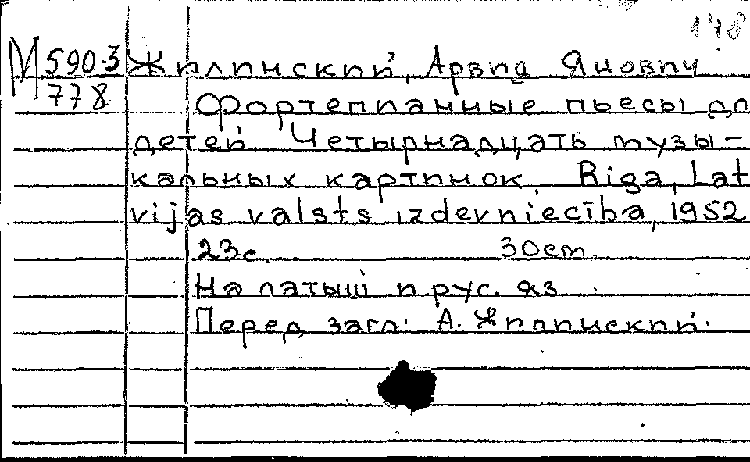 148
М 590-3 Жилинский, Арвид Янович
778
Фортепианные пьесы дл
детей Четырнадцать музы-
кальных картинок. Riga, Lat
vijas valsts izdevniecība, 1952
23с. 30cm
На латыш и рус. яз.
Перед загл: А. Жилинский.